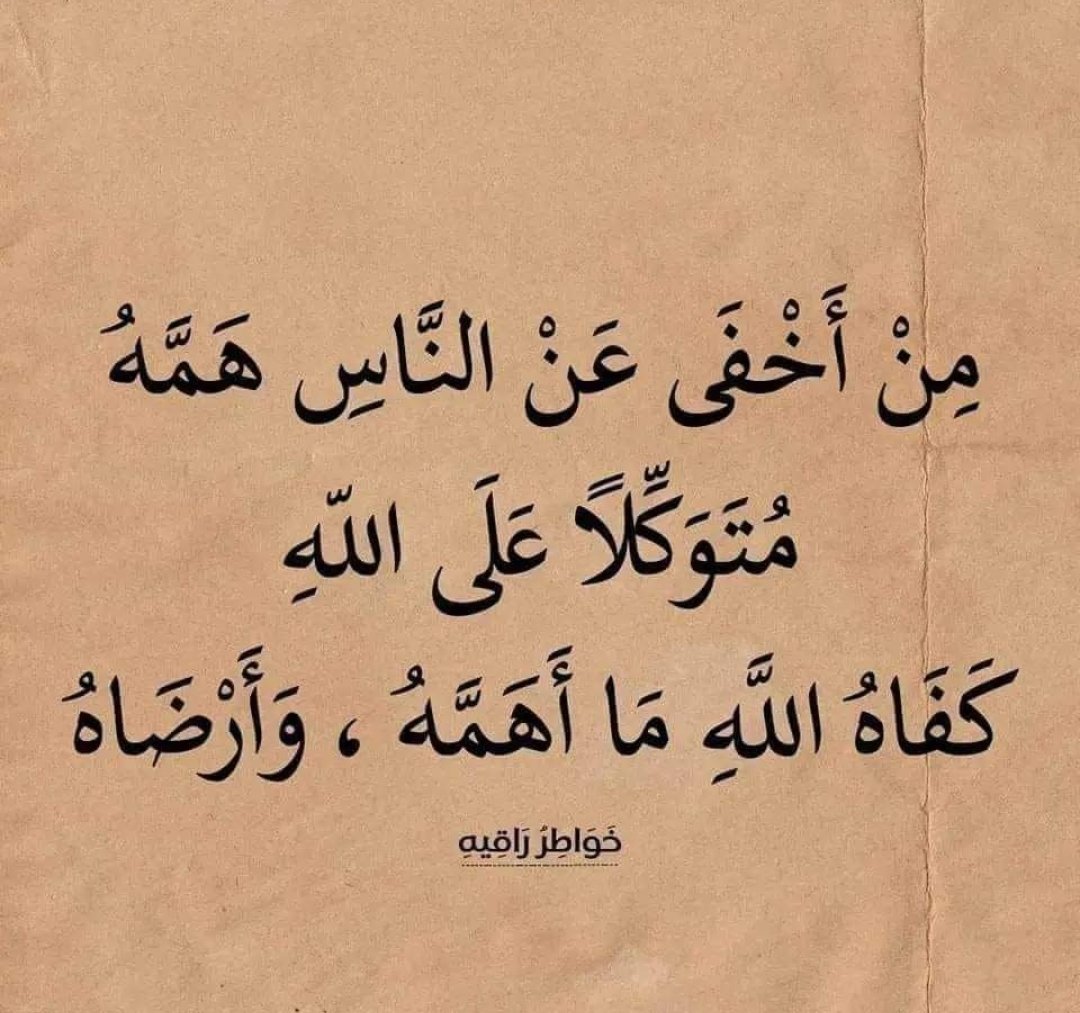 مِنْ أَخْفَى عَنْ النَّاسِ هَمَّهُ
مُتَوَكِّلاً عَلَى اللّهِ
كَفَاهُ اللَّهِ مَا أَهَمَّهُ ، وَأَرْضَاهُ
خَوَاطِرُ رَاقِيهِ